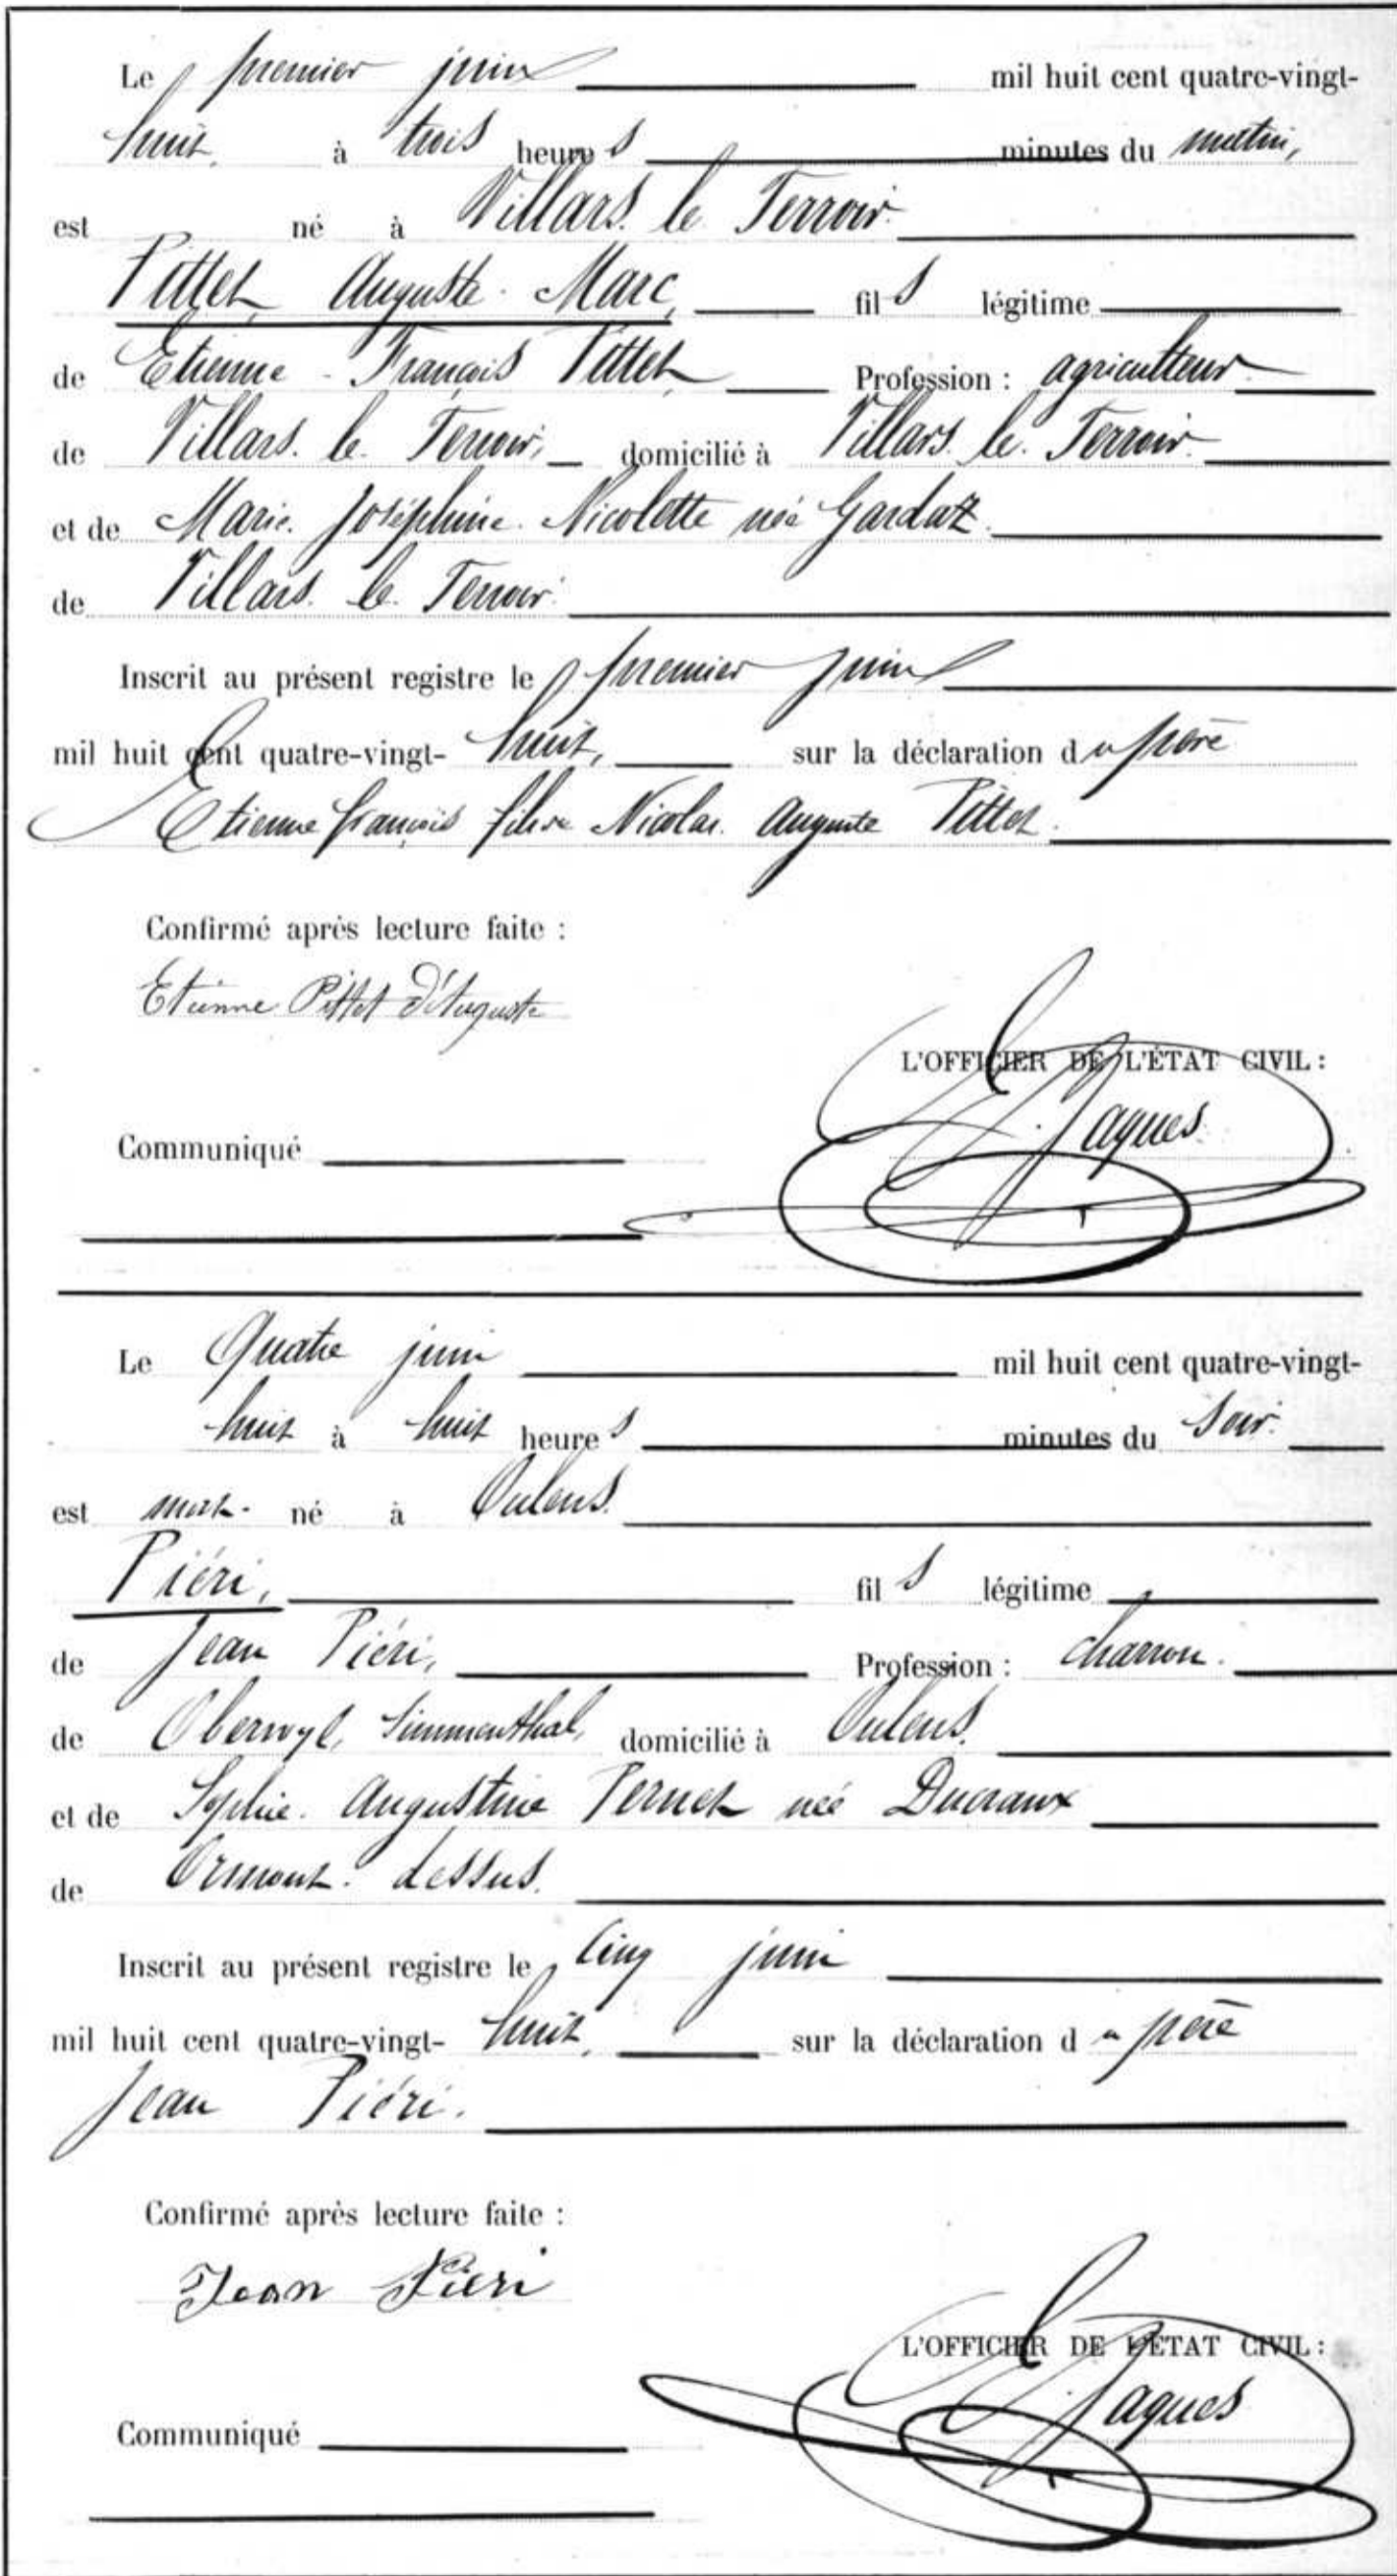 Le premier juin mil huit cent quatre-vingt-
huit, à trois heures minutes du matin,
est né à Villars le Terroir.
Pittet, Auguste-Marc, fils légitime
de Etienne-François Pittet, Profession : agriculteur
de Villars le Terroir, domicilié à Villars le Terroir
et de Marie Joséphine Nicolette née Gardaz
de Villars le Terroir
Inscrit au présent registre le premier juin
mil huit cent quatre-vingt-huit, sur la déclaration du père
Etienne françois Nicolas Auguste Pittet.
Confirmé après lecture faite :
Etienne Pittet d'Auguste
L'OFFICIER DE L'ÉTAT CIVIL :
Jaques
Communiqué
Le Quatre juin mil huit cent quatre-vingt-
huit à huit heures minutes du Soir.
est mort-né à Oulens.
Piéri, fils légitime
de Jean Piéri, Profession : charron.
de Oberwyl, Simmenthal, domicilié à Oulens.
et de Sophie Augustine Pernet née Ducraux
de Ormont-dessus.
Inscrit au présent registre le Cinq juin
mil huit cent quatre-vingt-huit, sur la déclaration du père
Jean Piéri.
Confirmé après lecture faite :
Jean Piéri
L'OFFICIER DE L'ÉTAT CIVIL :
Jaques
Communiqué